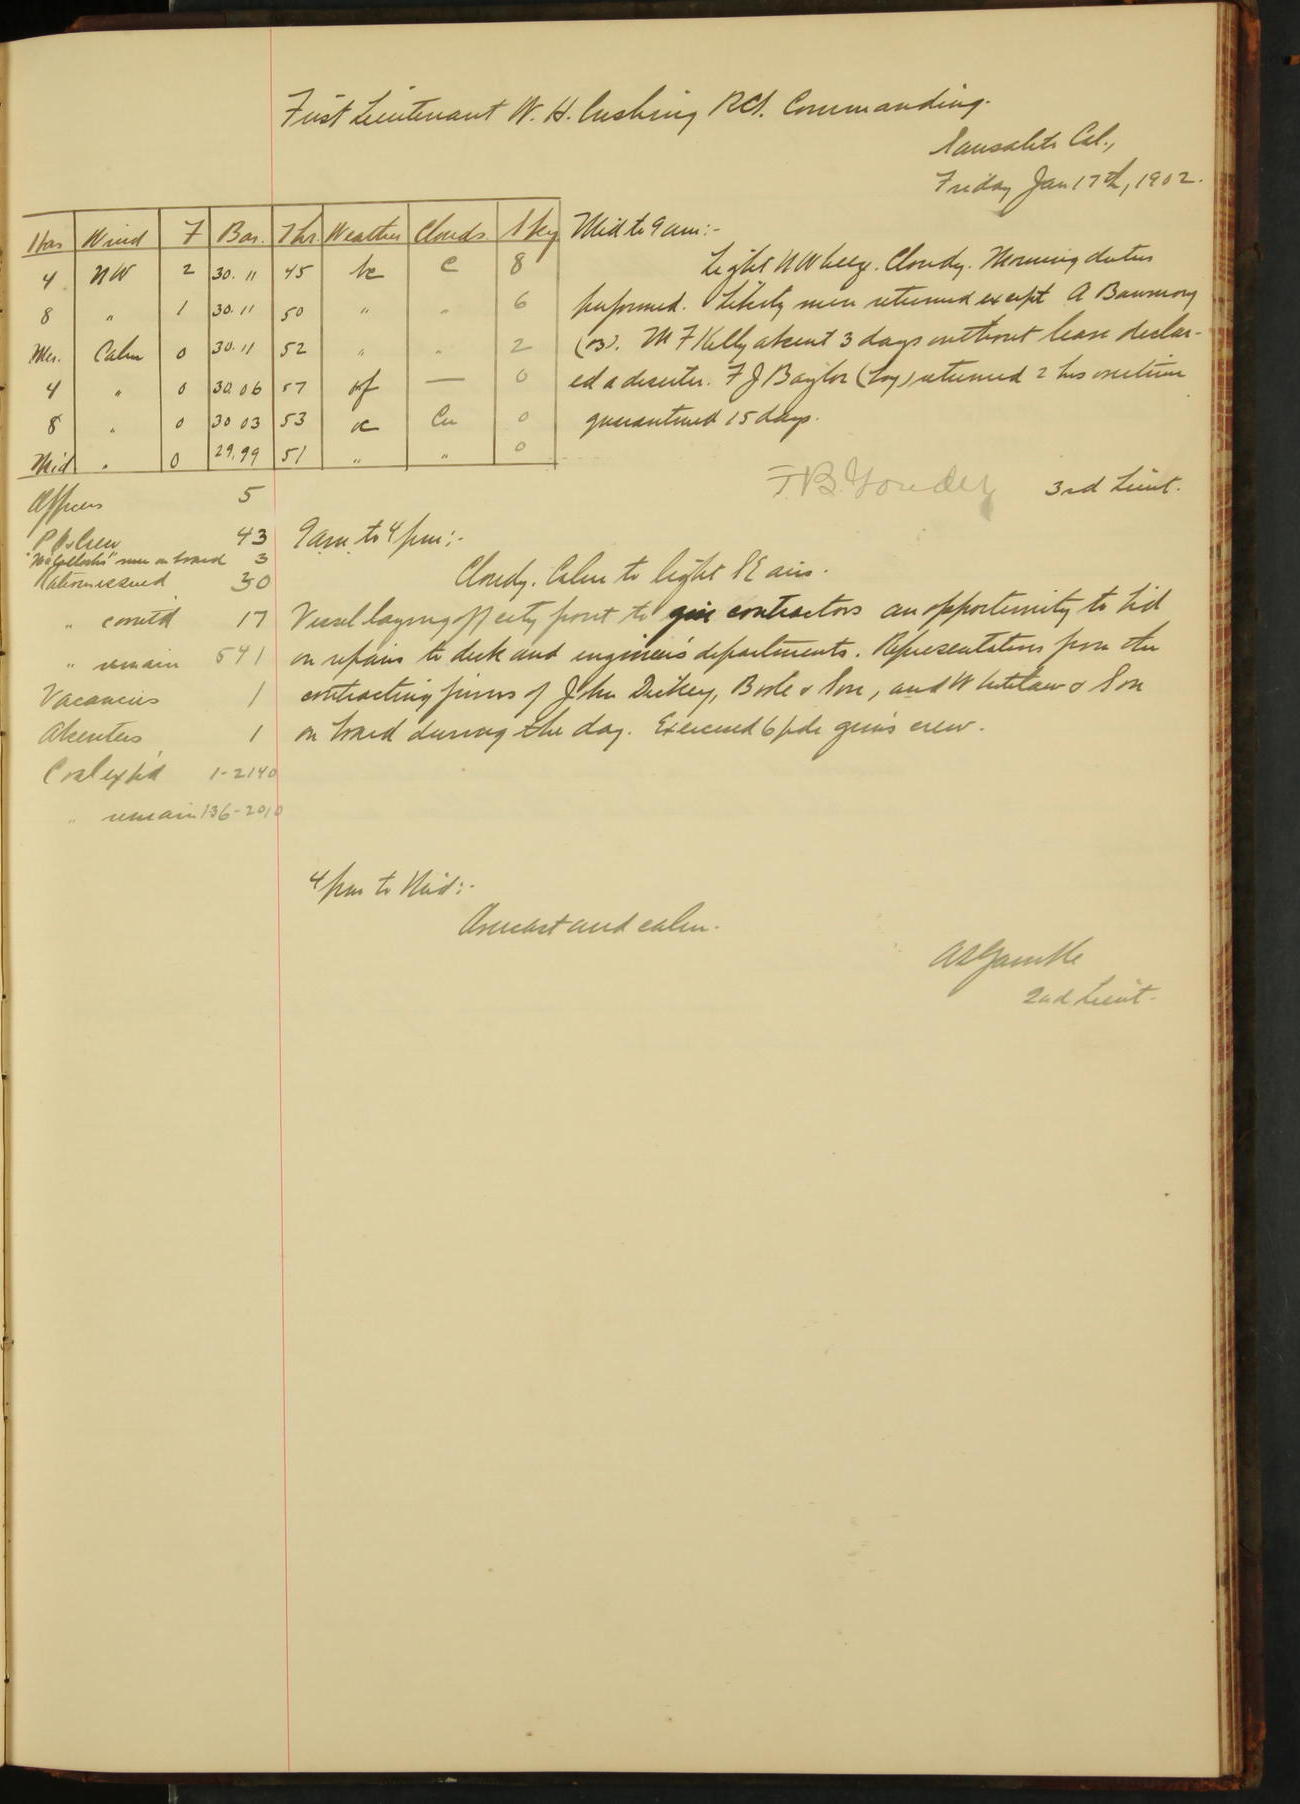 First Lieutenant W. H. Cushing RCS. Commanding.
Sausalito Cal.,
Friday Jan 17th, 1902.
Hrs Wind F Bar. Thr. Weather Clouds Sky
4 NW 2 30.11 45 bc C 8
8 " 1 30.11 50 " " 6
Mer. Calm 0 30.11 52 " " 2
4 " 0 30.06 57 of — 0
8 " 0 30 03 53 oc Cu 0
Mid " 0 29.99 51 " " 0
Mid to 9 am:-
Light NW breeze. Cloudy. Morning duties
performed. Liberty men returned except A
(os). M F Kelly absent 3 days without leave declar-
ed a deserter. F J Baylor (boy) returned 2 hrs overtime
quarantined 15 days.
F.B. 3rd Lieut.
Officers 5
P.Os Crew 43
"McCulloch's" men on board 3
Rations issued 30
" comtd 17
" remain 541
Vacancies 1
Absentees 1
Coal exp'd 1-2140
" remain 136-2010
9 am to 4 pm:-
Cloudy. Calm to light SE airs.
Vessel laying off city front to give contractors an opportunity to bid
on repairs to deck and engineer's departments. Representatives from the
contracting firms of John Dickey, Boole & Son, and Whitelaw & Son
on board during the day. Exercised 6 pdr gun's crew.
4 pm to Mid:-
Overcast and calm.
A S Gamble
2nd Lieut.